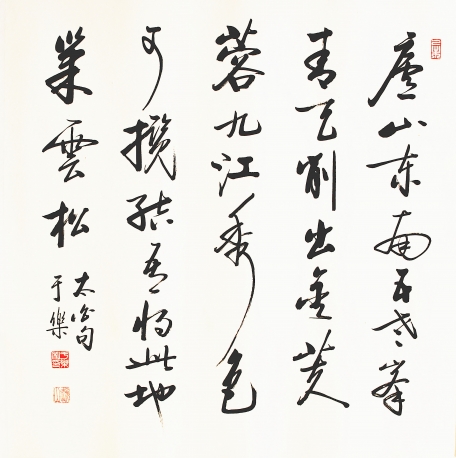 廬山東南五老峯
青天削出金芙
蓉九江秀色
可攬結吾將此地
巢雲松
太白句
于樂